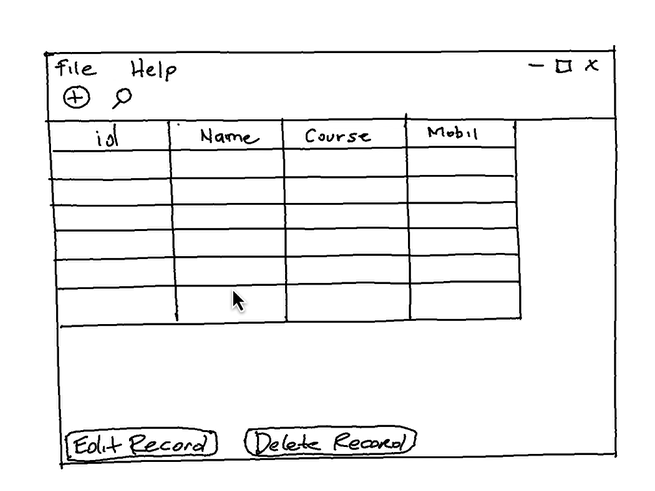 File Help
id Name Course Mobil
Edit Record Delete Record